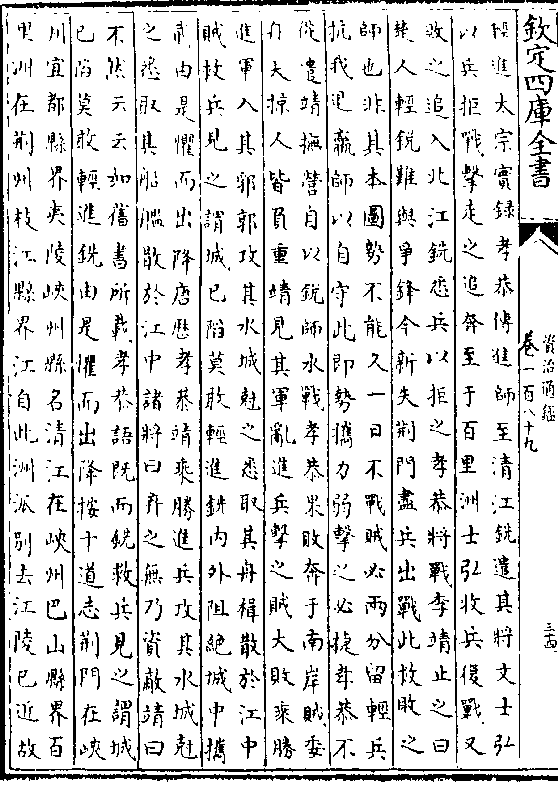 欽定四庫全書
資治通鑑
卷一百八十九
三十四
程進太宗實録孝恭傳進師至清江銑遣其將文士弘
以兵拒戰擊走之追奔至于百里洲士弘收兵復戰又
敗之追入北江銑悉兵以拒之孝恭將戰李靖止之曰
楚人輕鋭難與爭鋒今新失荆門盡兵出戰此救敗之
師也非其本圖勢不能久一日不戰賊必兩分留輕兵
抗我退羸師以自守此即勢攜力弱擊之必捷孝恭不
從遣靖撫營自以鋭師水戰孝恭果敗奔于南岸賊委
舟大掠人皆負重靖見其軍亂進兵擊之賊大敗乘勝
進軍入其郛郭攻其水城尅之悉取其舟楫散於江中
賊救兵見之謂城已陷莫敢輕進銑内外阻絶城中攜
貳由是懼而出降唐歴孝恭靖乘勝進兵攻其水城尅
之悉取其船艦散於江中諸將曰弃之無乃資敵靖曰
不然云云如舊書所載孝恭語既而銑救兵見之謂城
已陷莫敢輕進銑由是懼而出降按十道志荆門在峽
川宜都縣界夷陵峽州縣名清江在峽州巴山縣界百
里洲在荆州枝江縣界江自此洲派别去江陵已近故